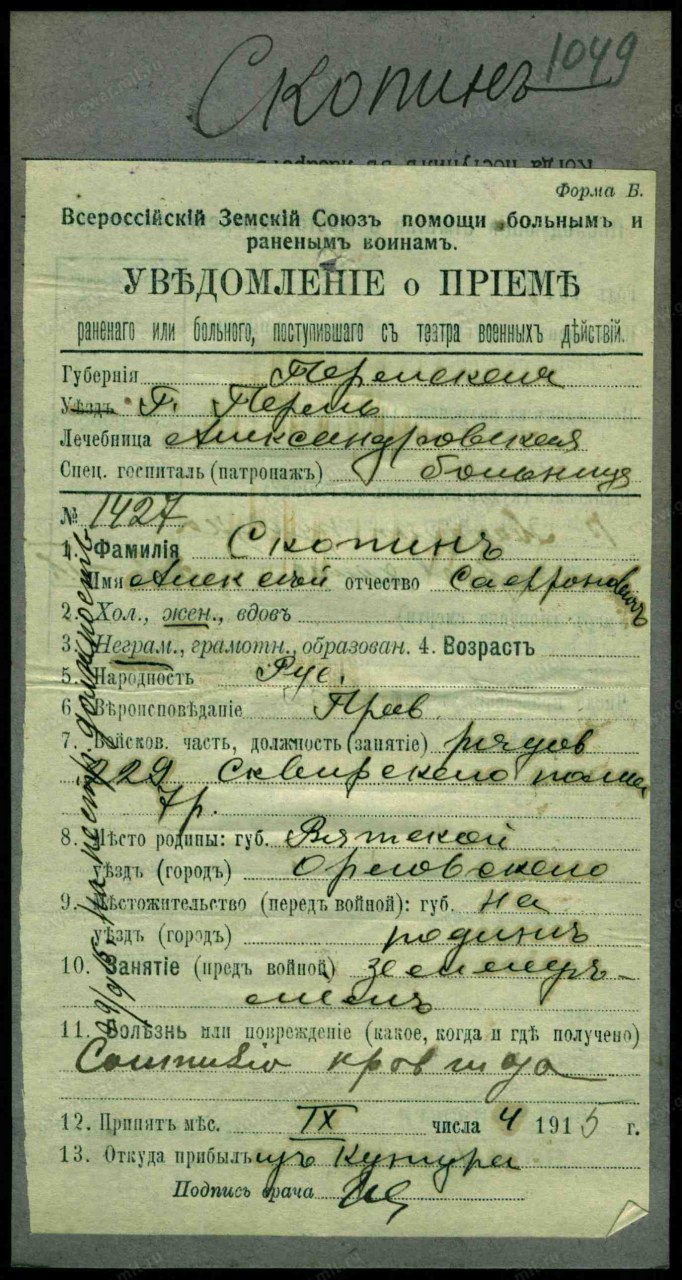 1049
Скопинъ
Когда поступилъ въ лазаретъ
Форма Б.
Всероссійскій Земскій Союзъ помощи больнымъ и
раненымъ воинамъ.
УВѢДОМЛЕНІЕ о ПРІЕМѢ
раненаго или больного, поступившаго съ театра военныхъ дѣйствій.
Губернія Пермская
Уѣздъ Г. Пермь
Лечебница Александровская
Спец. госпиталь (патронажъ) больница
№ 1427
1. Фамилія Скопинъ
Имя Алексей отчество Сафроновичъ
2. Хол., жен., вдовъ
3. Неграм., грамотн., образован. 4. Возрастъ
5. Народность Рус.
6. Вѣроисповѣданіе Прав.
7. Войсков. часть, должность (занятіе) рядов
229 Сквирского полка
7р.
8. Мѣсто родины: губ. Вятской
уѣздъ (городъ) Орловского
9. Мѣстожительство (передъ войной): губ. на
уѣздъ (городъ) родинѣ
10. Занятіе (предъ войной)
11. Болѣзнь или поврежденіе (какое, когда и гдѣ получено)
12. Принятъ мѣс. IX числа 4 1915 г.
13. Откуда прибылъ изъ
Подпись врача